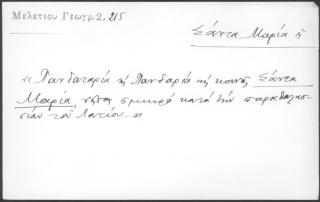 Μελετίου Γεωγρ. 2, 215
Σάντα Μαρία ἡ
«Πανδαταρία ἢ Πανδαρία τῆς κοινῆς Σάντα
Μαρία, νῆσος σμικρά κατά τήν παραθαλασ-
σίαν τοῦ Λατίου..»